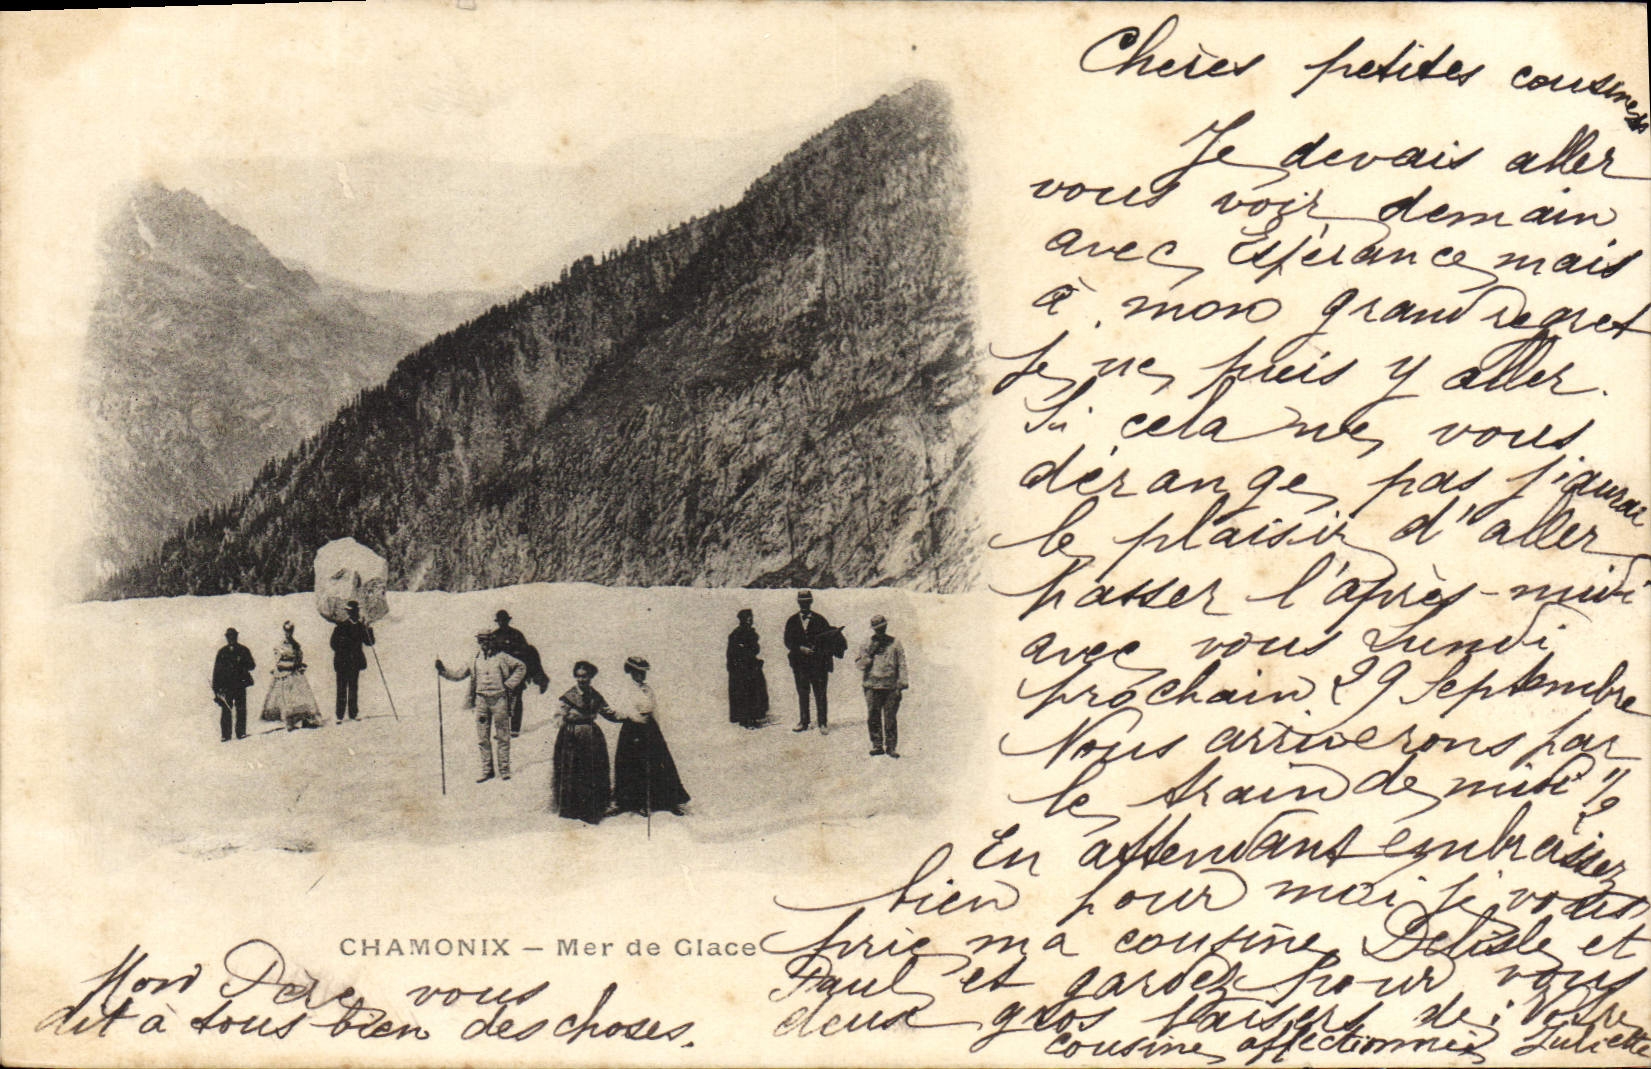 Chères petites cousines
Je devais aller
vous voir demain
avec Espérance mais
à mon grand regret
je ne puis y aller.
Si cela ne vous
dérange pas j'aurai
le plaisir d'aller
passer l'après-midi
avec vous Lundi
prochain 29 Septembre
Nous arriverons par
le train de midi ½
En attendant embrassez
bien pour moi je vous
prie ma cousine Delisle et
Paul et gardez pour vous
deux gros baisers de : Votre
cousine affectionnée Juliette
CHAMONIX – Mer de Glace
Mon Père vous
dit à tous bien des choses.